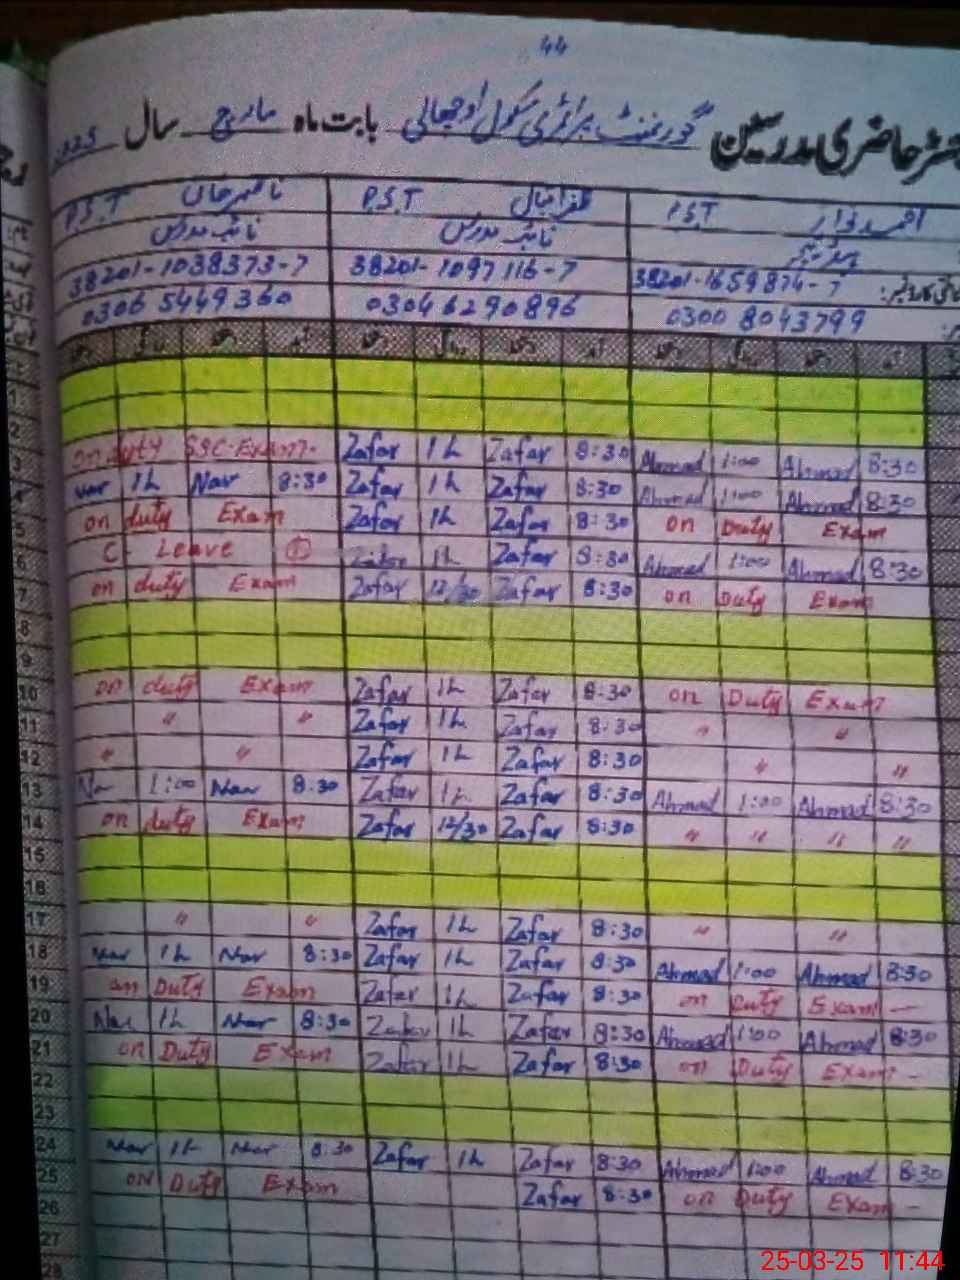 44
رجسٹر حاضری مدرسین گورنمنٹ پرائمری سکول اوچھالی بابت ماہ مارچ سال 2025
احمد نواز P.S.T ظفر اقبال P.S.T P.S.T
نائب مدرس نائب مدرس
38201-1659874-7 38201-1097116-7 38201-1038373-7
0300 8043799 0304 6290896 0306 5449360
1
2
3 on duty SSC-Exam- Zafar 1h Zafar 8:30 Ahmad 1:00 Ahmad 8:30
4 Nar 1h Nar 8:30 Zafar 1h Zafar 8:30 Ahmad 1:00 Ahmad 8:30
5 on duty Exam Zafar 1h Zafar 8:30 on Duty Exam
6 C- Leave ① Zafar 1h Zafar 8:30 Ahmad 1:00 Ahmad 8:30
7 on duty Exam Zafar 12/30 Zafar 8:30 on Duty Exam
8
9
10 on duty Exam Zafar 1h Zafar 8:30 on Duty Exam
11 " " Zafar 1h Zafar 8:30 " "
12 " " Zafar 1h Zafar 8:30 " "
13 Nar 1:00 Nar 8:30 Zafar 1h Zafar 8:30 Ahmad 1:00 Ahmad 8:30
14 on duty Exam Zafar 12/30 Zafar 8:30 " " " "
15
16
17 " " Zafar 1h Zafar 8:30 " "
18 Nar 1h Nar 8:30 Zafar 1h Zafar 8:30 Ahmad 1:00 Ahmad 8:30
19 on Duty Exam Zafar 1h Zafar 8:30 on Duty Exam -
20 Nar 1h Nar 8:30 Zafar 1h Zafar 8:30 Ahmad 1:00 Ahmad 8:30
21 on Duty Exam Zafar 1h Zafar 8:30 on Duty Exam -
22
23
24 Nar 1h Nar 8:30 Zafar 1h Zafar 8:30 Ahmad 1:00 Ahmad 8:30
25 on Duty Exam Zafar 8:30 on Duty Exam -
26
27
28
25-03-25 11:44